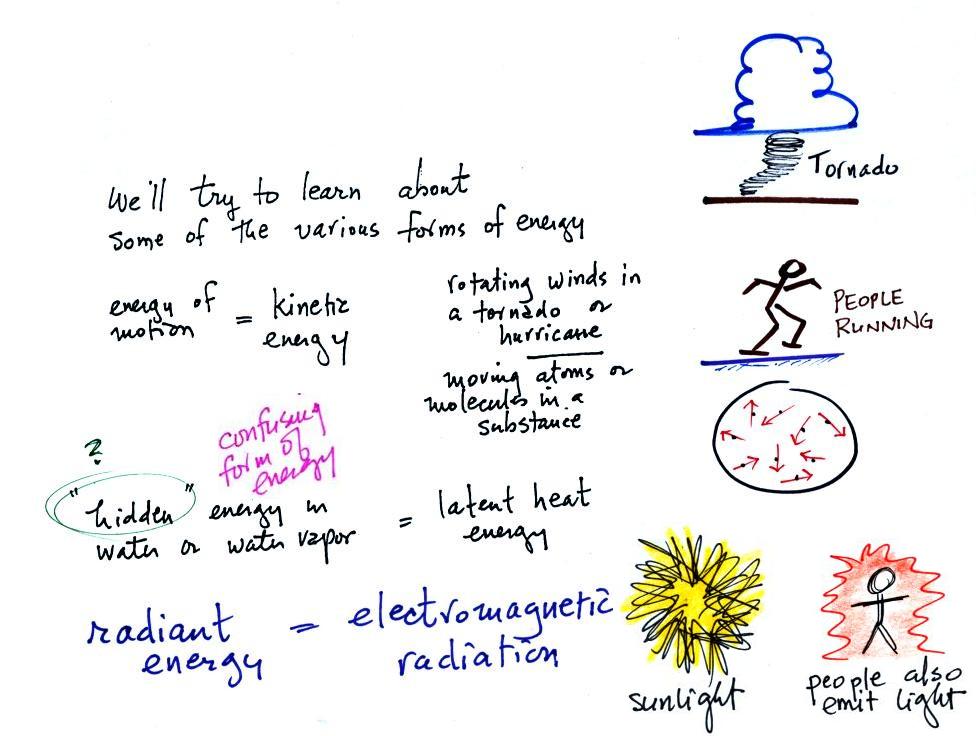 We'll try to learn about
some of the various forms of energy
Tornado
energy of
motion
=
kinetic
energy
rotating winds in
a tornado or
hurricane
moving atoms or
molecules in a
substance
PEOPLE
RUNNING
?
confusing
form of
energy
"hidden" energy in
water or water vapor
=
latent heat
energy
radiant
energy
=
electromagnetic
radiation
sunlight
people also
emit light